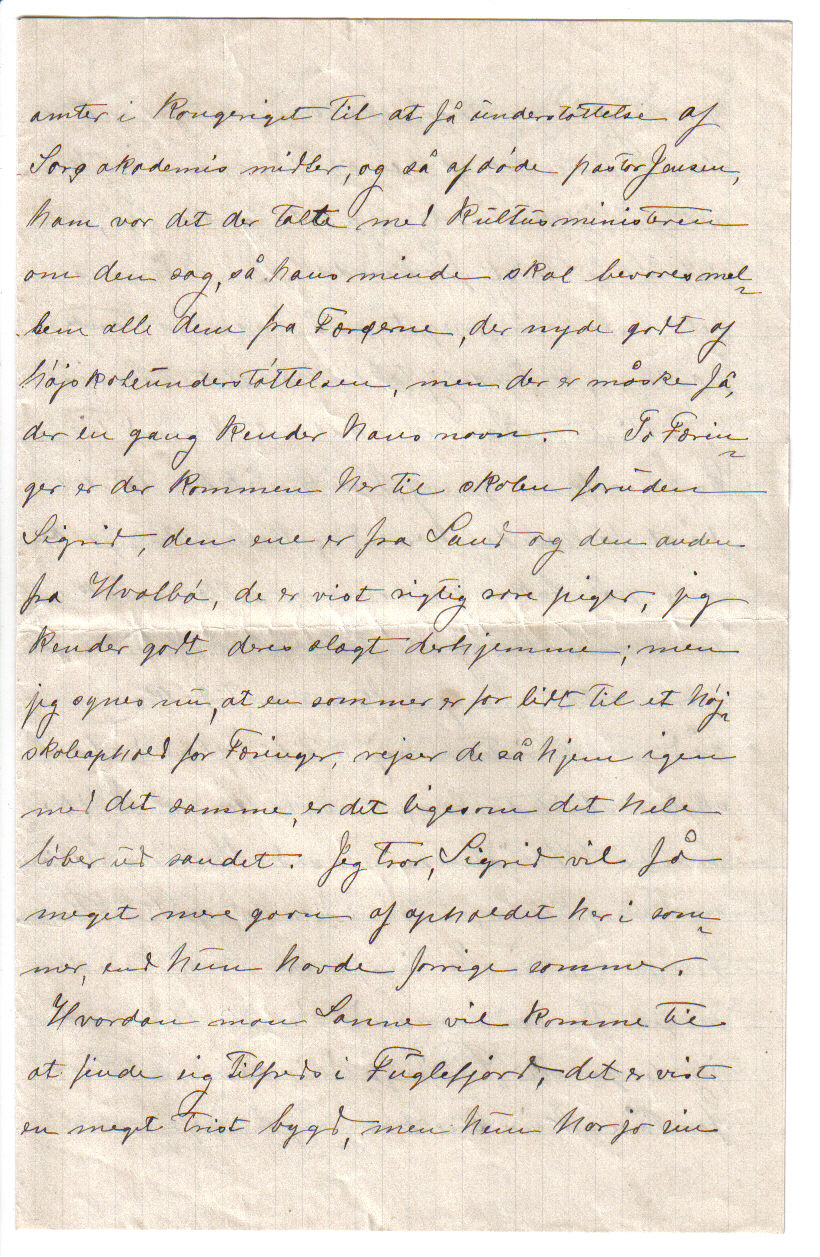 amter i Kongeriget til at få understøttelse af
Sorø akademis midler, og så afdøde pastor Jensen,
ham var det der talte med Kultusministeren
om den sag, så hans minde skal bevares mel-
lem alle dem fra Færøerne, der nyde godt af
højskoleunderstøttelsen, men der er måske få,
der en gang kender hans navn. To Færin-
ger er der kommen her til skolen foruden
Sigrid, den ene er fra Sand og den anden
fra Hvalbø, de er vist rigtig rare piger, jeg
kender godt deres slægt derhjemme; men
jeg synes nu, at en sommer er for lidt til et høj-
skoleophold for Færinger, rejser de så hjem igen
med det samme, er det ligesom det hele
løber ud sandet. Jeg tror, Sigrid vil få
meget mere gavn af opholdet her i som-
mer, end hun havde forrige sommer.
Hvordan mon Sanne vil komme til
at finde sig tilfreds i Fuglefjord, det er vist
en meget trist bygd, men hun har jo sin